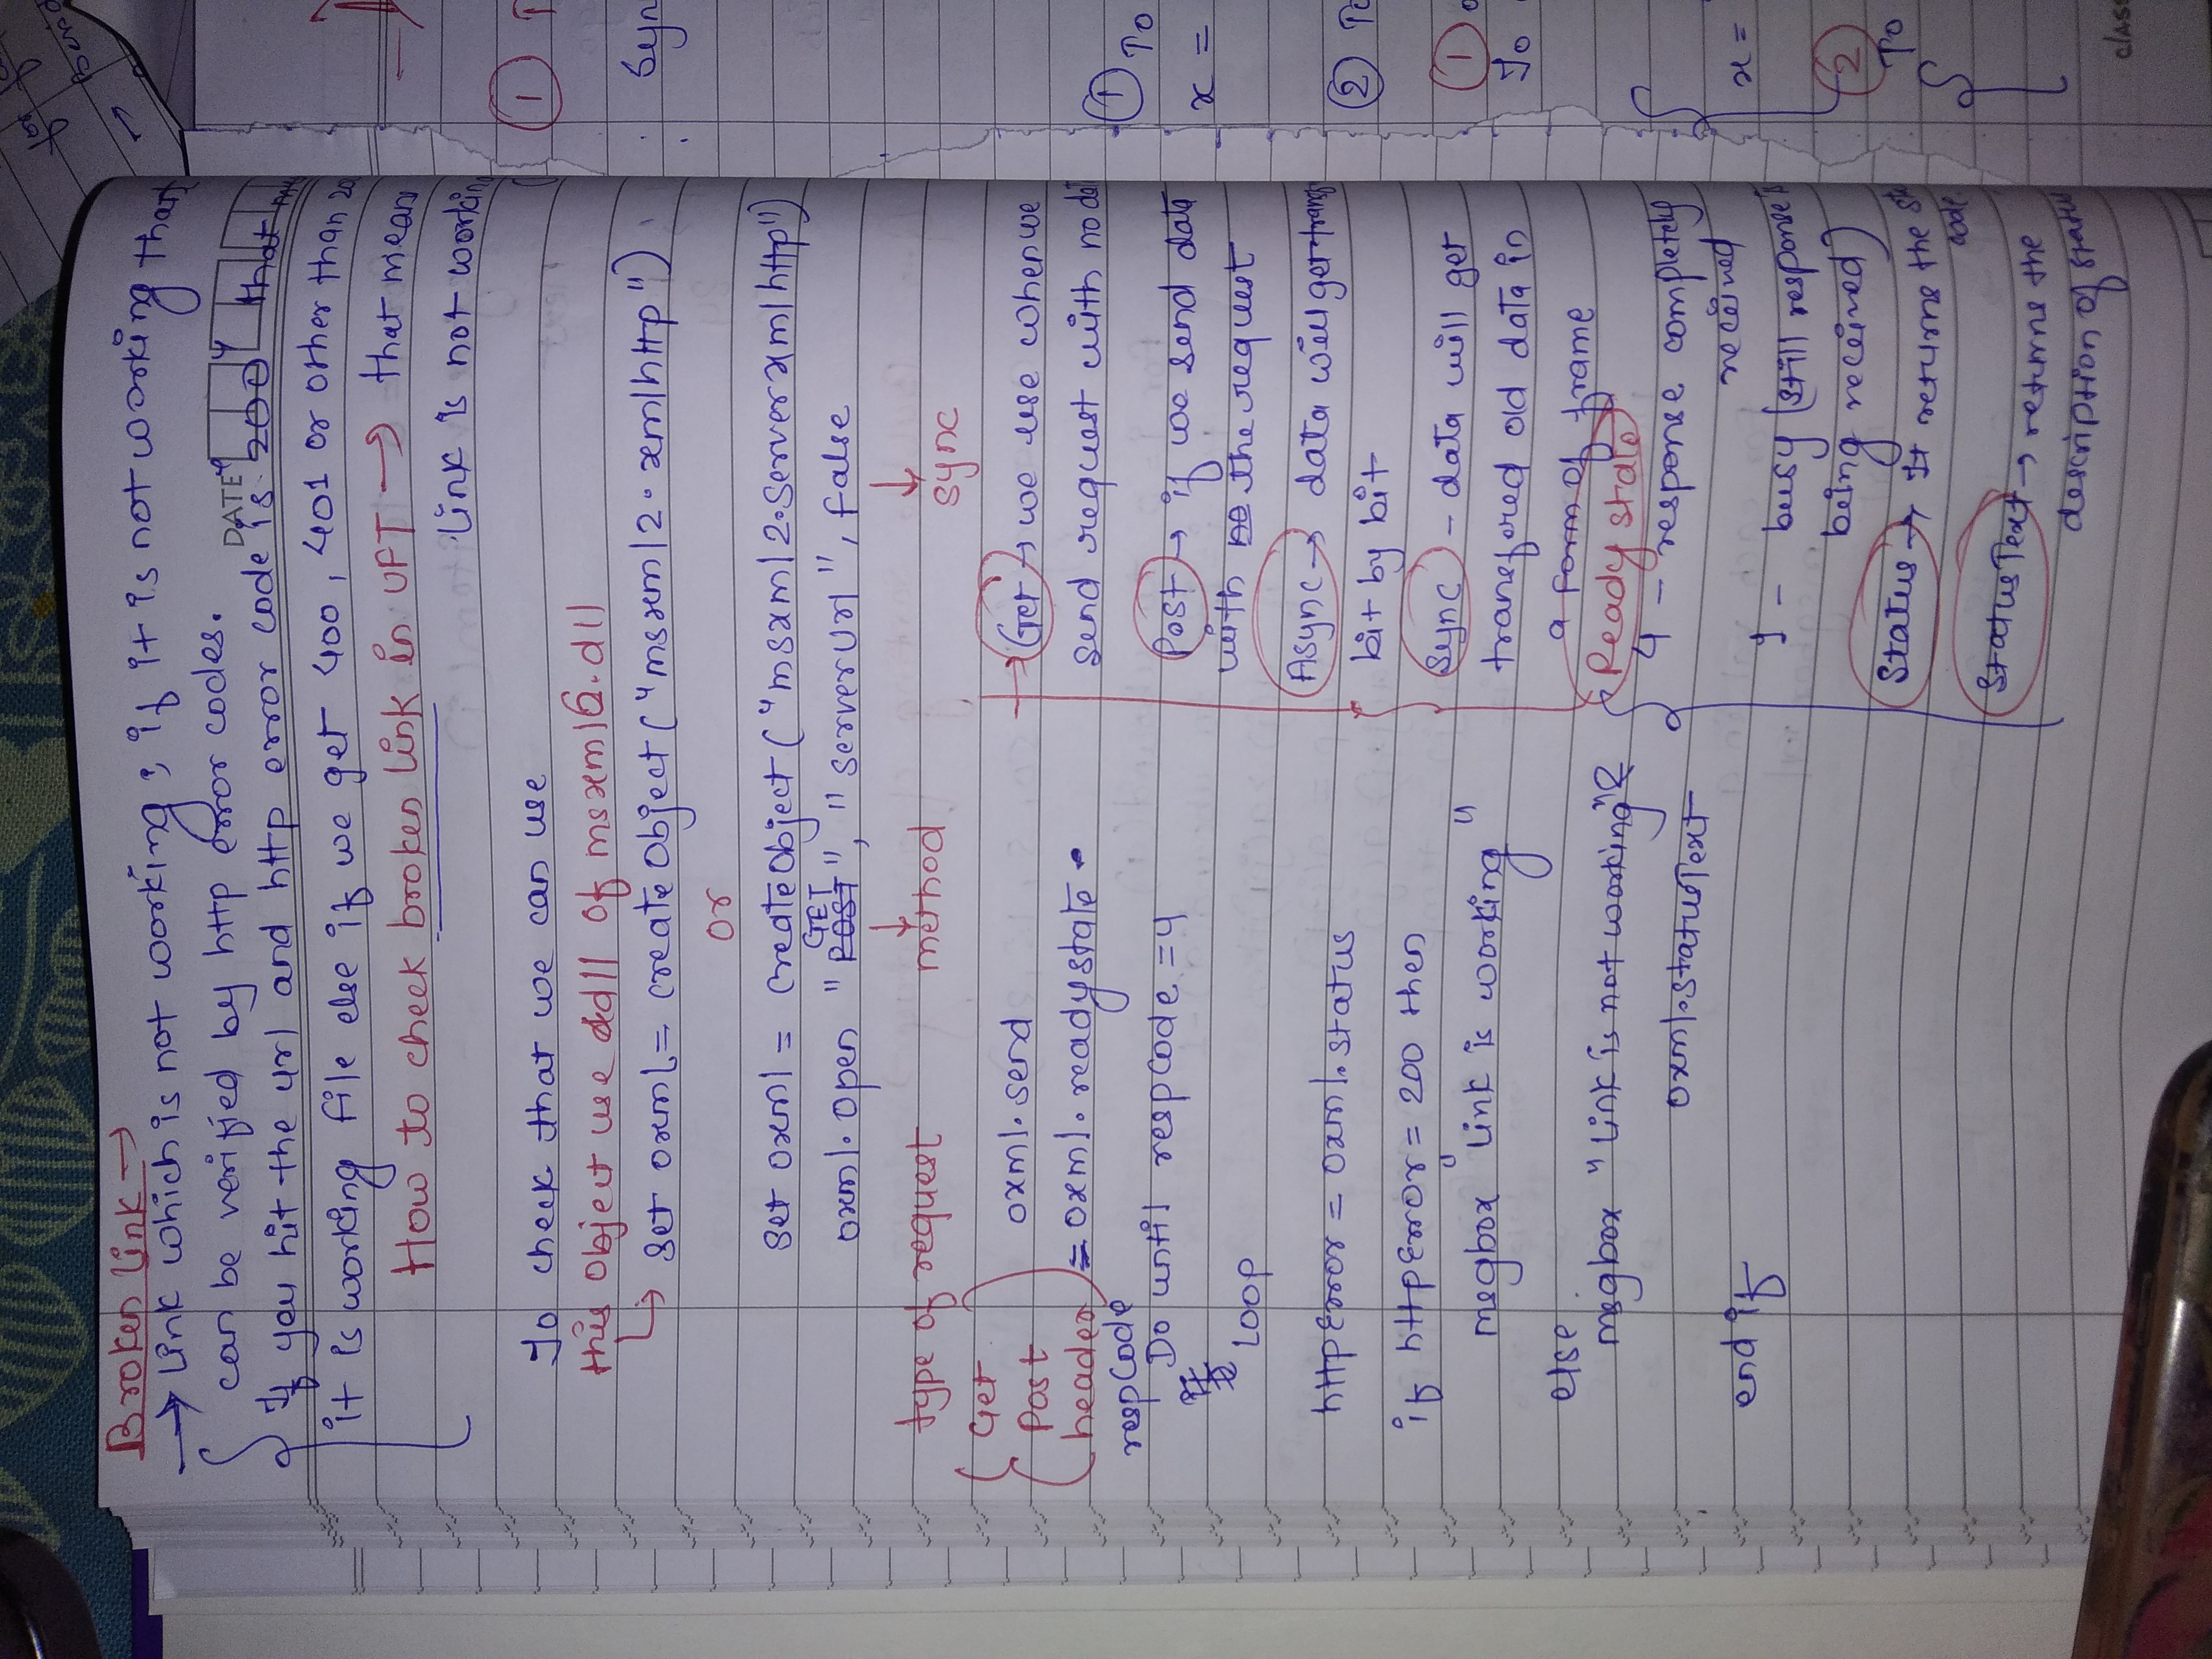 Broken link →
→ link which is not working, if it is not working than
can be verified by http error codes.
DATE
If you hit the url and http error code is 200 that
it is working file else if we get 400, 401 or other than 20
How to check broken link in UFT → that mean
link is not working
To check that we can use
this object use dll of msxml6.dll
→ set oxml = createobject("msxml2.xmlhttp")
or
set oxml = createobject("msxml2.serverxmlhttp")
GET
oxml.open "POST", "serverurl", false
type of request
method
sync
Get
Post
header
oxml.send
respcode = oxml.readystate
Do until respcode = 4
Loop
httperror = oxml.status
if httperror = 200 then
msgbox "link is working"
else
msgbox "link is not working" &
oxml.statusText
end if
→ Get → we use when we
send request with no dat
Post → if we send data
with no the request
Async → data will get trans
bit by bit
Sync - data will get
transfered old data in
a form of frame
Ready state
4 - response completely
received
1 - busy (still response is
being received)
Status → It returns the st
code
StatusText → returns the
description of status
① T
Syn
① To
x =
② To
①
To
x =
②
To
CLASS